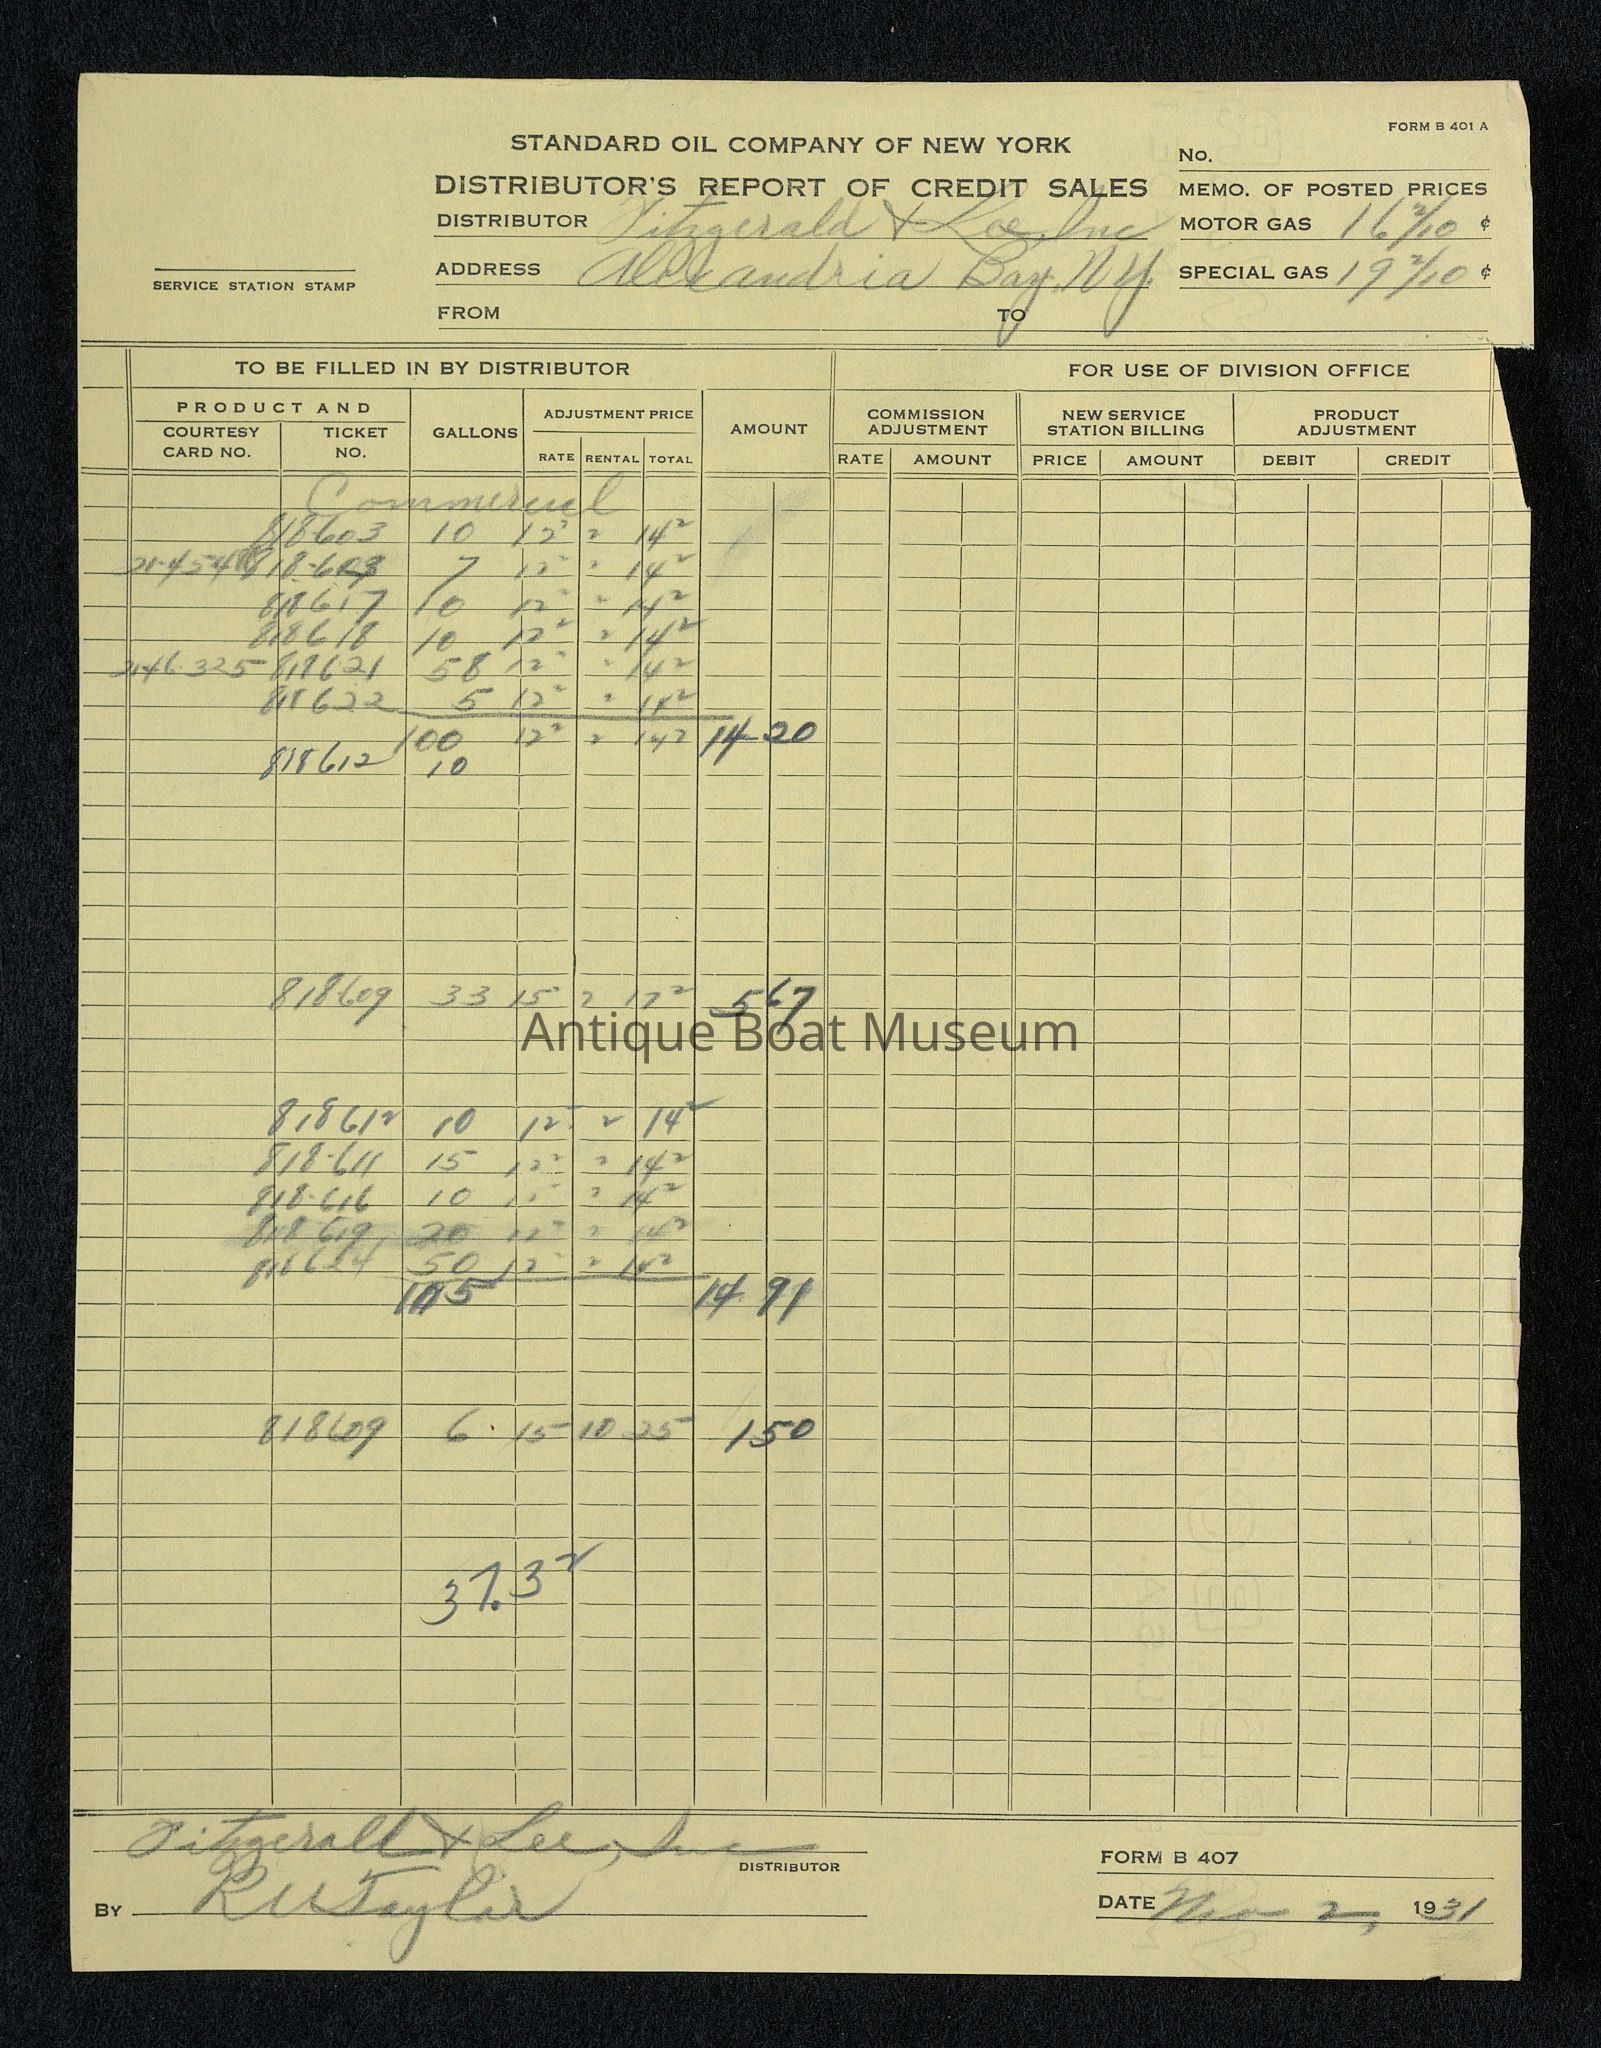 FORM B 401 A
STANDARD OIL COMPANY OF NEW YORK
No.
DISTRIBUTOR'S REPORT OF CREDIT SALES
MEMO. OF POSTED PRICES
DISTRIBUTOR Fitzgerald & Lee, Inc
MOTOR GAS 16 2/10 ¢
ADDRESS Alexandria Bay, N.Y.
SPECIAL GAS 19 2/10 ¢
SERVICE STATION STAMP
FROM TO
TO BE FILLED IN BY DISTRIBUTOR FOR USE OF DIVISION OFFICE
PRODUCT AND
COURTESY CARD NO. TICKET NO. GALLONS ADJUSTMENT PRICE AMOUNT COMMISSION ADJUSTMENT NEW SERVICE STATION BILLING PRODUCT ADJUSTMENT
RATE RENTAL TOTAL RATE AMOUNT PRICE AMOUNT DEBIT CREDIT
Commercial
818603 10 12² 2 14²
7 12² 2 14²
818617 10 12² 2 14²
818618 10 12² 2 14²
818621 58 12² 2 14²
818622 5 12² 2 14²
100 12² 2 14² 14 20
818612 10
818609 33 15² 2 17² 5 67
Antique Boat Museum
818612 10 12² 2 14²
818-611 15 12² 2 14²
818-616 10 12² 2 14²
818619 20 12² 2 14²
50 12² 2 14²
105 14 91
818609 6 15 10 25 1 50
37.3²
Fitzgerald & Lee, Inc
DISTRIBUTOR
FORM B 407
BY Taylor
DATE Nov 2, 1931